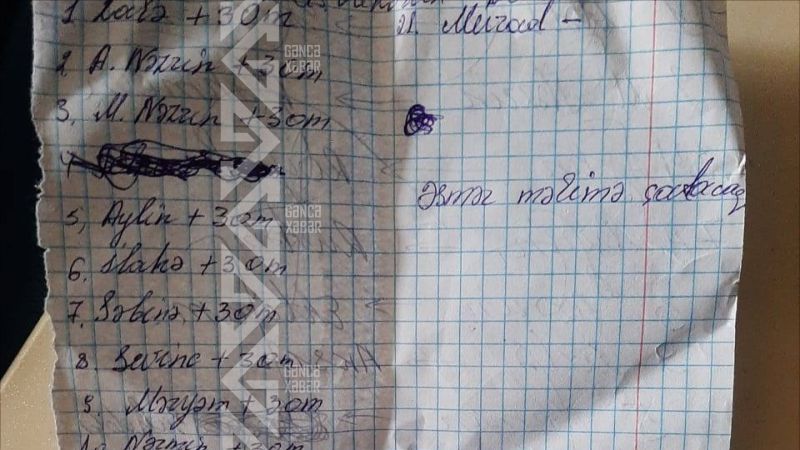 1. Zarə + 30m
2 A. Nəzrin + 30m
3. M. Nəzrin + 30m
4
5, Aylin + 30m
6. İlahə + 30m
7. Səbinə + 30m
8. Sevinc + 30m
9. Məryəm + 30m
10 Nərmin + 30m
21. Murad –
Əsmər məlimə çatacaq
GƏNCƏ XƏBƏR
GƏNCƏ XƏBƏR
GƏNCƏ XƏBƏR